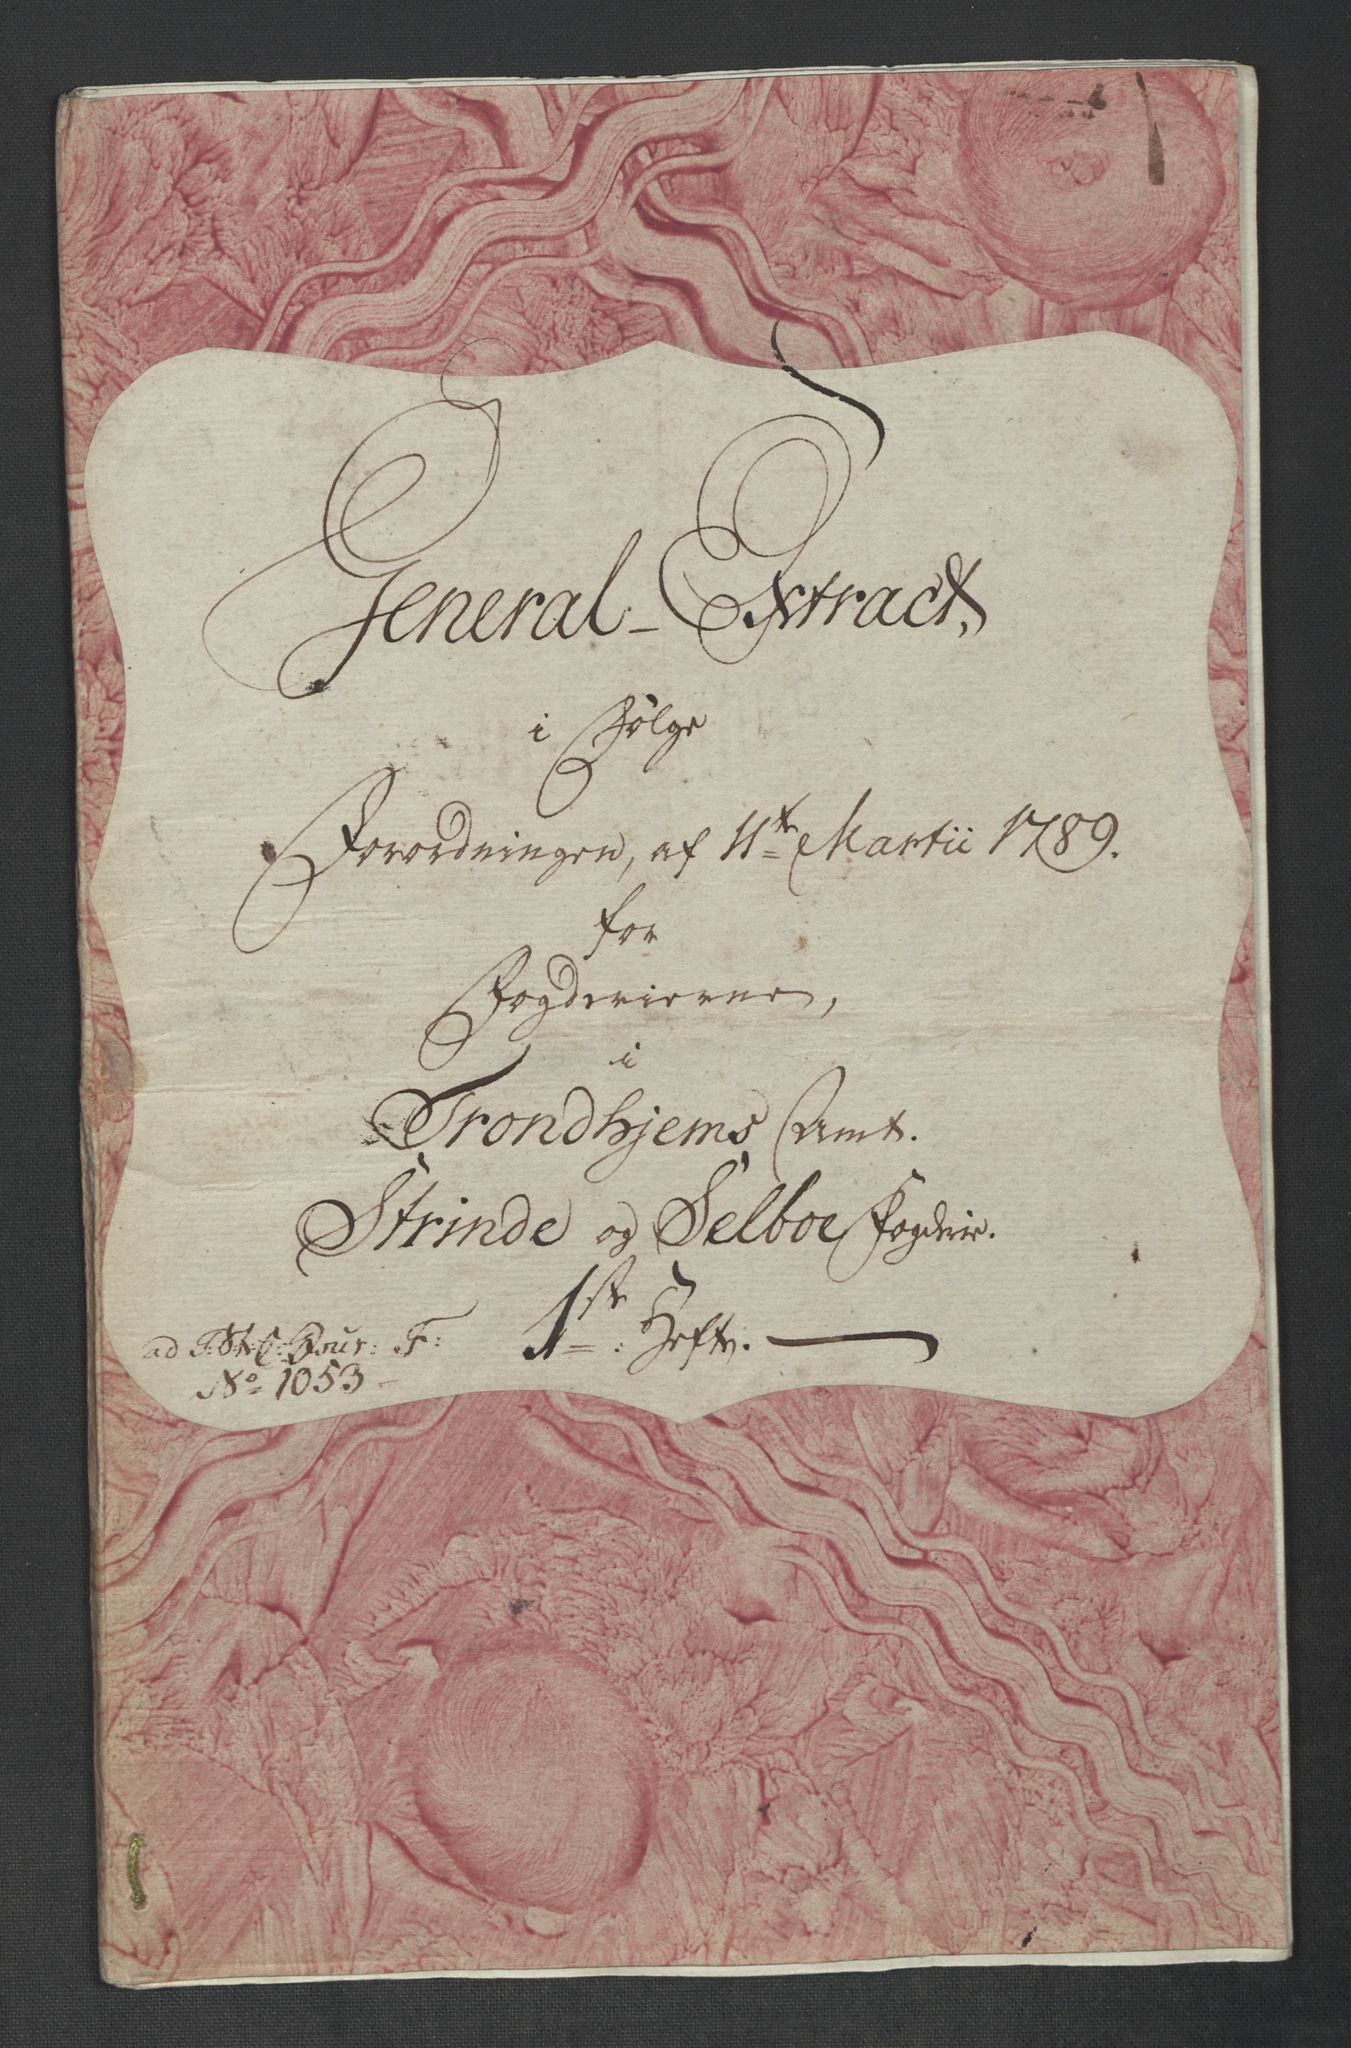 General-Extract,
i Følge
Forordningen, af 11te Martii 1789.
for
Fogderierne,
i
Trondhjems Amt.
Strinde og Selboe Fogderie.
1ste: Hefte.
ad T: St: C: Jour: F:
No 1053